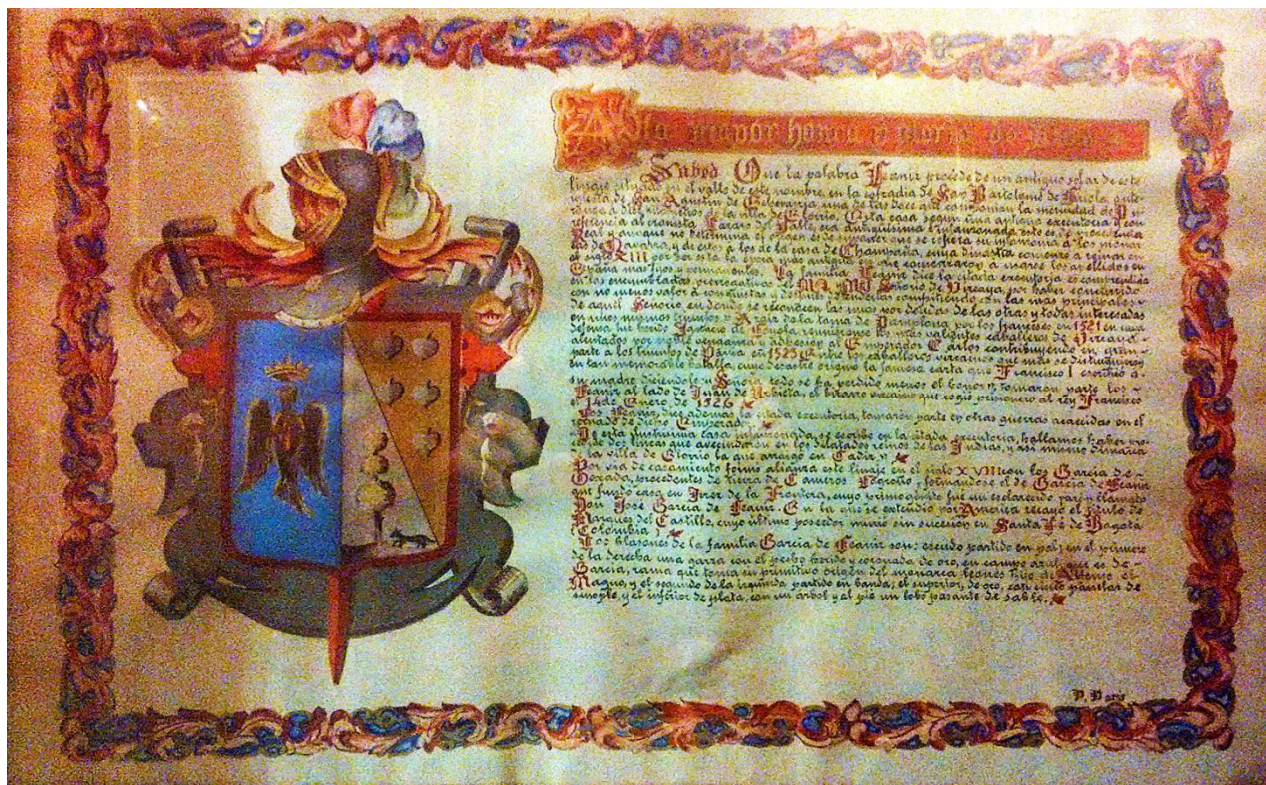 A la mayor honra y gloria de Dios
Sabed Que la palabra Leaniz procede de un antiguo solar de este
linaje situado en el valle de este nombre, en la cofradia de San Bartolomé de ante-
iglesia de San Agustin de Echevarria, una de las doce que componian la merindad de
a dos kilómetros de la villa de Elorrio. Esta casa según una antigua executoria y con
referencia al cronista del Valle, era antiquisima e infanzonada esto es de procedencia
Real y aunque no determina la época es de suponer que se refiera su infanzonia a los monar-
cas de Navarra, y de estos a los de la casa de Champaña, cuya dinastia comenzó a reinar en
el siglo XIII por ser esta la época más antigua en que empezaron a usarse los apellidos en
España mas fijos y permanentes. La familia Leganiz dice la citada executoria es comprendida
en las encumbradas prerrogativas del M.N. y M.L. Señorio de Vizcaya, por haber concurrido
con no menos valor á conquistas y despues defenderlas compitiendo con las mas principales
de aquel Señorio, en donde se trascienden las unas por devidas de las otras y todas interesadas
en unos mismos triunfos. A raiz de la toma de Pamplona por los franceses en 1521 en cuya
defensa fué herido Ignacio de Loyola reunieronse unos valientes caballeros de Vizcaya
alentados por noble venganza y adhesion al Emperador Carlos contribuyendo en gran
parte a los triunfos de Pavia en 1525. Entre los caballeros vizcainos que más se distinguieron
en tan memorable batalla, cuyo desastre originó la famosa carta que Francisco I escribió a
su madre diciendole: "Señora todo se ha perdido menos el honor", tomaron parte los
Leaniz al lado de Juan de Urbieta, el bizarro vizcaino que cogió prisionero al rey Francisco
el 14 de Enero de 1526
Los Leaniz, dice ademas la citada executoria, tomaron parte en otras guerras acaecidas en el
reinado de dicho Emperador.
De esta ilustrisima casa infanzonada, se escribe en la citada executoria, hallamos haber pro-
dos lineas que avecindaron en los dilatados reinos de las Indias, y asi mismo dimana
de la villa de Elorrio la que arraigó en Cadiz.
Por via de casamiento formó alianza este linaje en el siglo XVIII con los Garcia de
procedentes de tierra de Cameros (Logroño), formandose el de Garcia de Leaniz
que fundó casa en Jerez de la Frontera, cuyo primogénito fué un esclarecido llamado
Don José Garcia de Leaniz. En la que se extendió por America recayó el titulo de
Marques del Castillo, cuyo último poseedor murió sin sucesion en Santa Fé de Bogotá
(Colombia)
Los blasones de la familia Garcia de Leaniz son: escudo partido en pal; en el primero
de la derecha una garza con el pecho herido y coronada de oro, en campo azul, que es de
Garcia, rama que toma su primitivo origen del monarca leonés hijo de Alfonso el
Magno, y el segundo de la izquierda partido en banda; el superior, de oro, con cinco panelas de
sinople, y el inferior de plata, con un arbol y al pié un lobo pasante de sable.